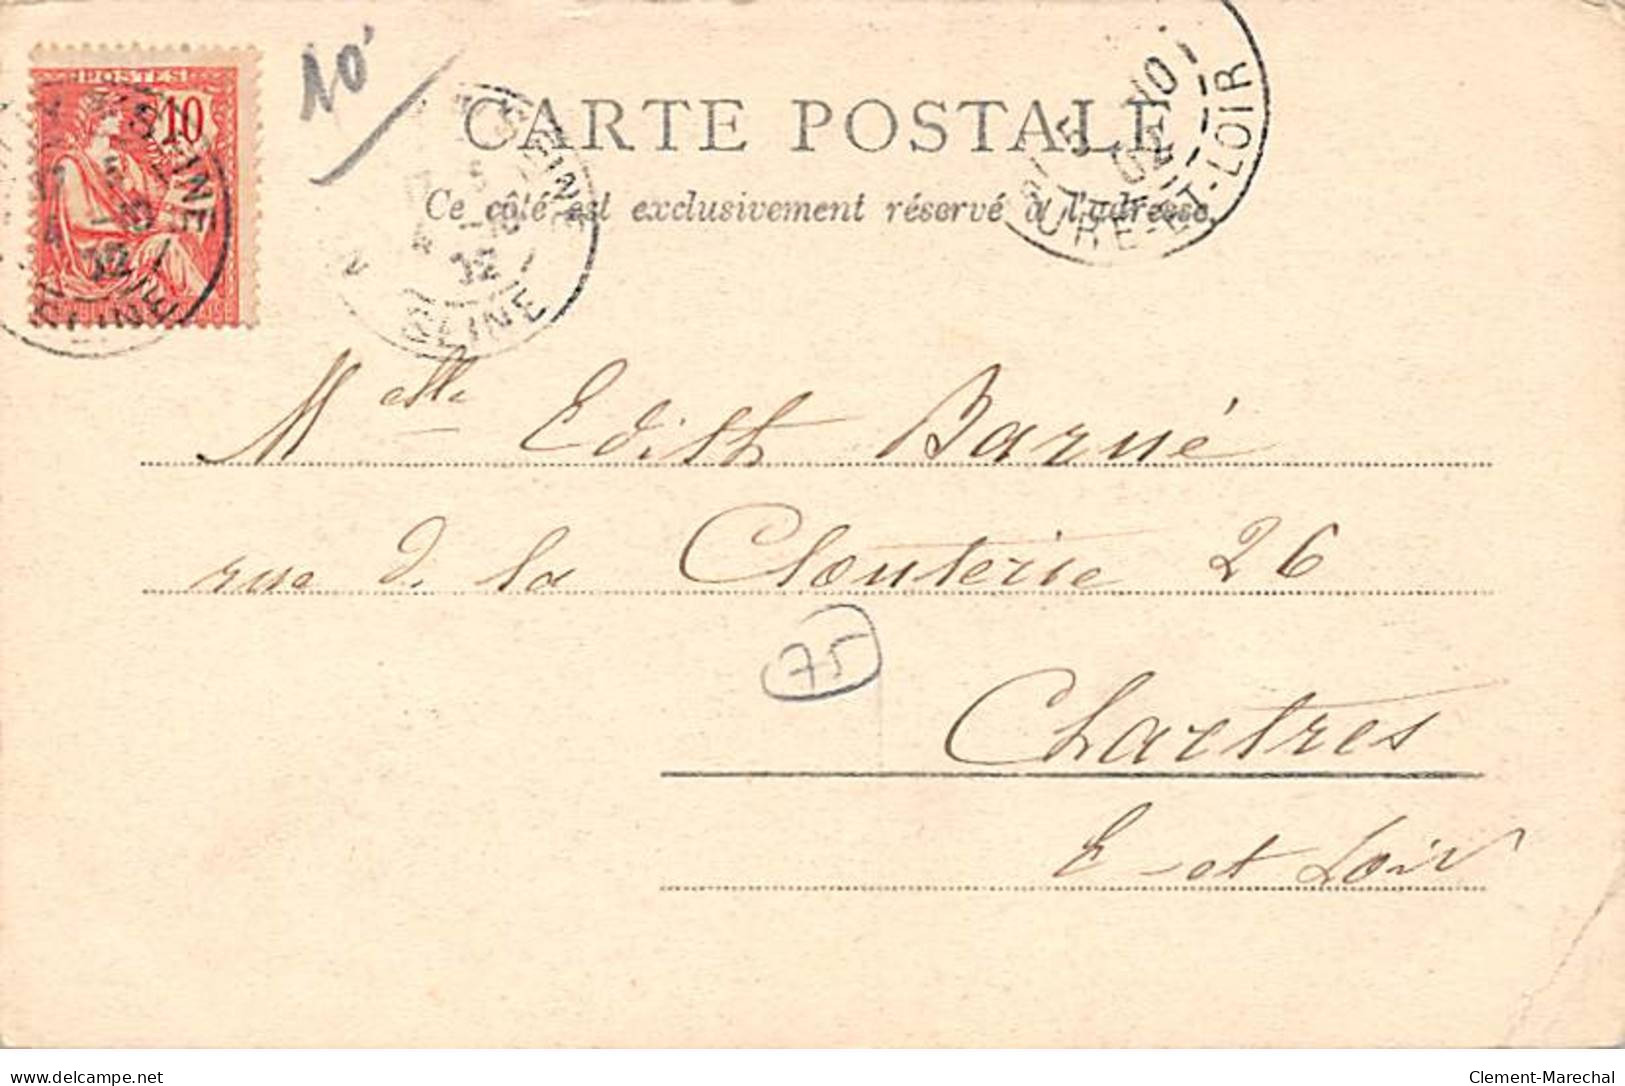 POSTES
10
10
CARTE POSTALE
Ce côté est exclusivement réservé à l'adresse
5 -10
02
EURE-ET-LOIR
SEINE
Melle Edith Barué
rue d. la Clouterie 26
75
Chartres
E-et Loir
delcampe.net
Clement-Marechal